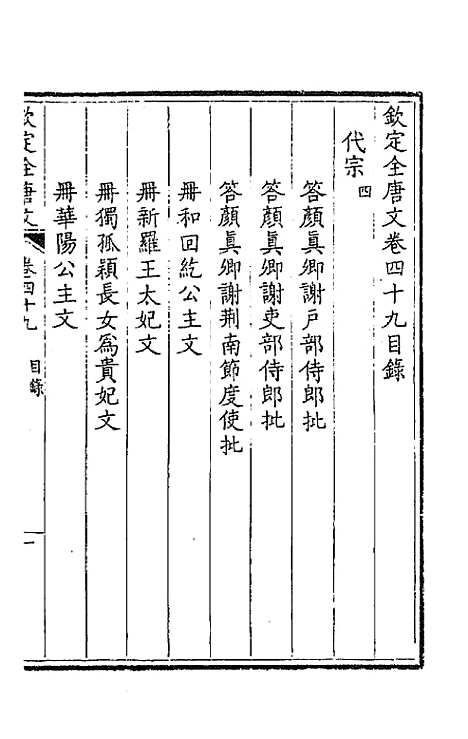 欽定全唐文卷四十九目錄
代宗四
答顏眞卿謝戸部侍郎批
答顏眞卿謝吏部侍郎批
答顏眞卿謝荆南節度使批
冊和回紇公主文
冊新羅王太妃文
冊獨孤穎長女爲貴妃文
冊華陽公主文
欽定全唐文 卷四十九 目錄 一